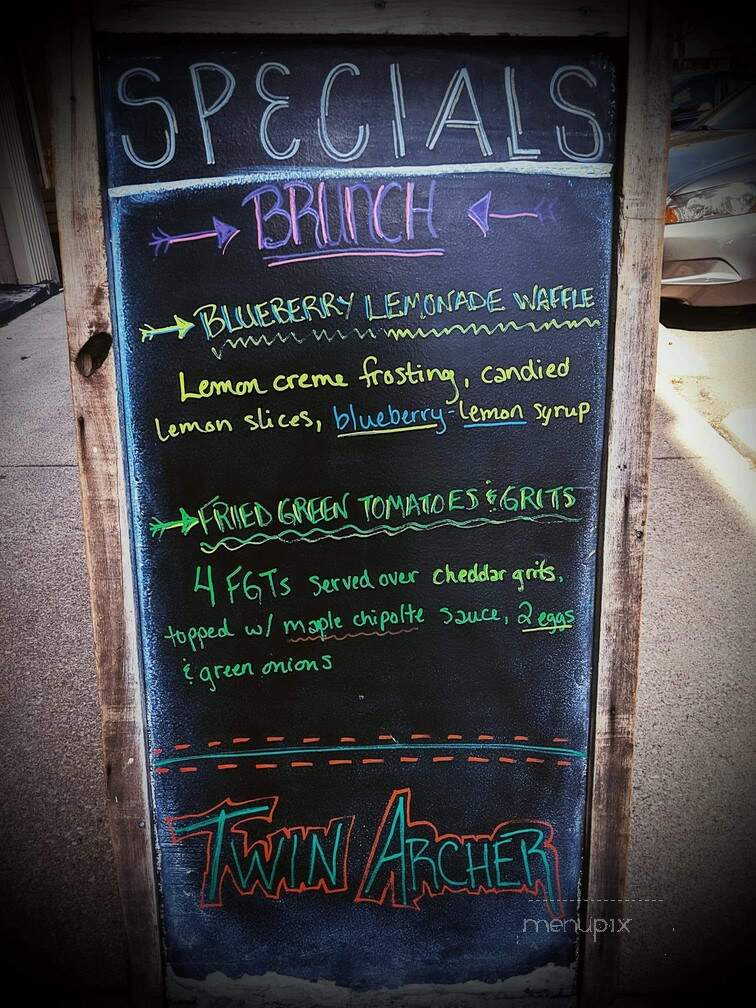 SPECIALS
BRUNCH
BLUEBERRY LEMONADE WAFFLE
Lemon creme frosting, candied
lemon slices, blueberry-lemon syrup
FRIED GREEN TOMATOES & GRITS
4 FGTs served over cheddar grits,
topped w/ maple chipolte sauce, 2 eggs
& green onions
TWIN ARCHER
menupix